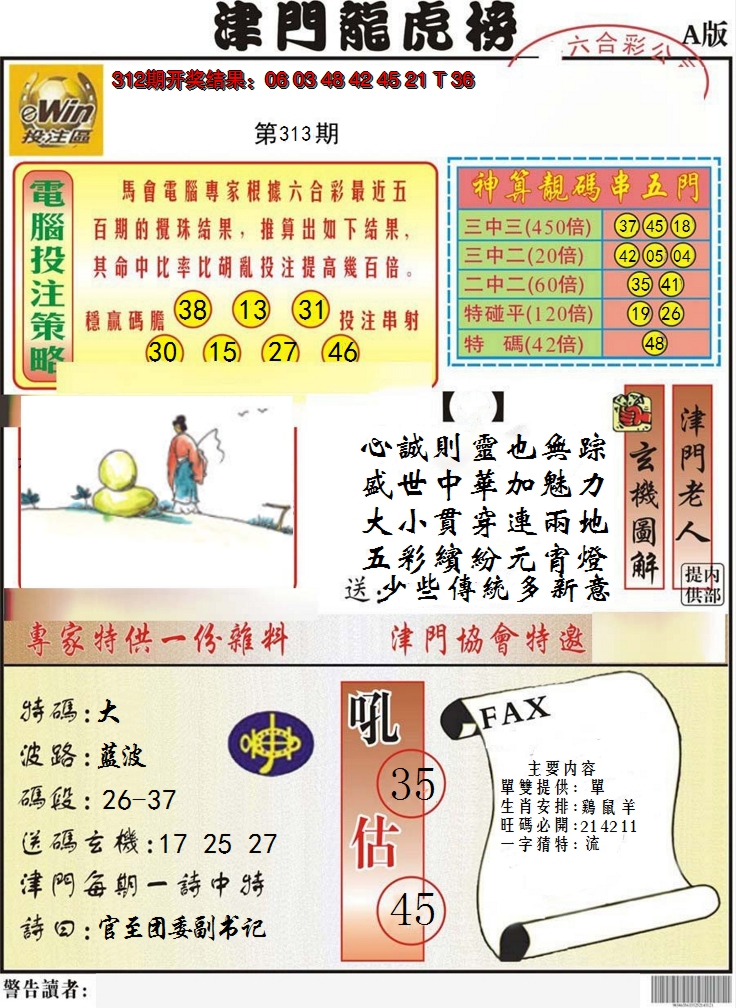 津門龍虎榜
A版
六合彩公
eWin
投注區
312期开奖结果：06 03 48 42 45 21 T 36
第313期
電腦投注策略
馬會電腦專家根據六合彩最近五
百期的攪珠结果，推算出如下结果，
其命中比率比胡亂投注提高幾百倍。
穩贏碼膽 38 13 31 投注串射
30 15 27 46
神算靚碼串五門
三中三(450倍) 37 45 18
三中二(20倍) 42 05 04
二中二(60倍) 35 41
特碰平(120倍) 19 26
特 碼(42倍) 48
【 】
心誠則靈也無踪
盛世中華加魅力
大小貫穿連兩地
五彩繽紛元宵燈
送:少些傳統多新意
玄機圖解
津門老人
内部提供
專家特供一份雜料
津門協會特邀
特碼:大
波路:藍波
碼段:26-37
送碼玄機:17 25 27
津門每期一詩中特
詩曰:官至团委副书记
吼
35
估
45
FAX
主要内容
單雙提供：單
生肖安排:鷄鼠羊
旺碼必開:214211
一字猜特:流
警告讀者: